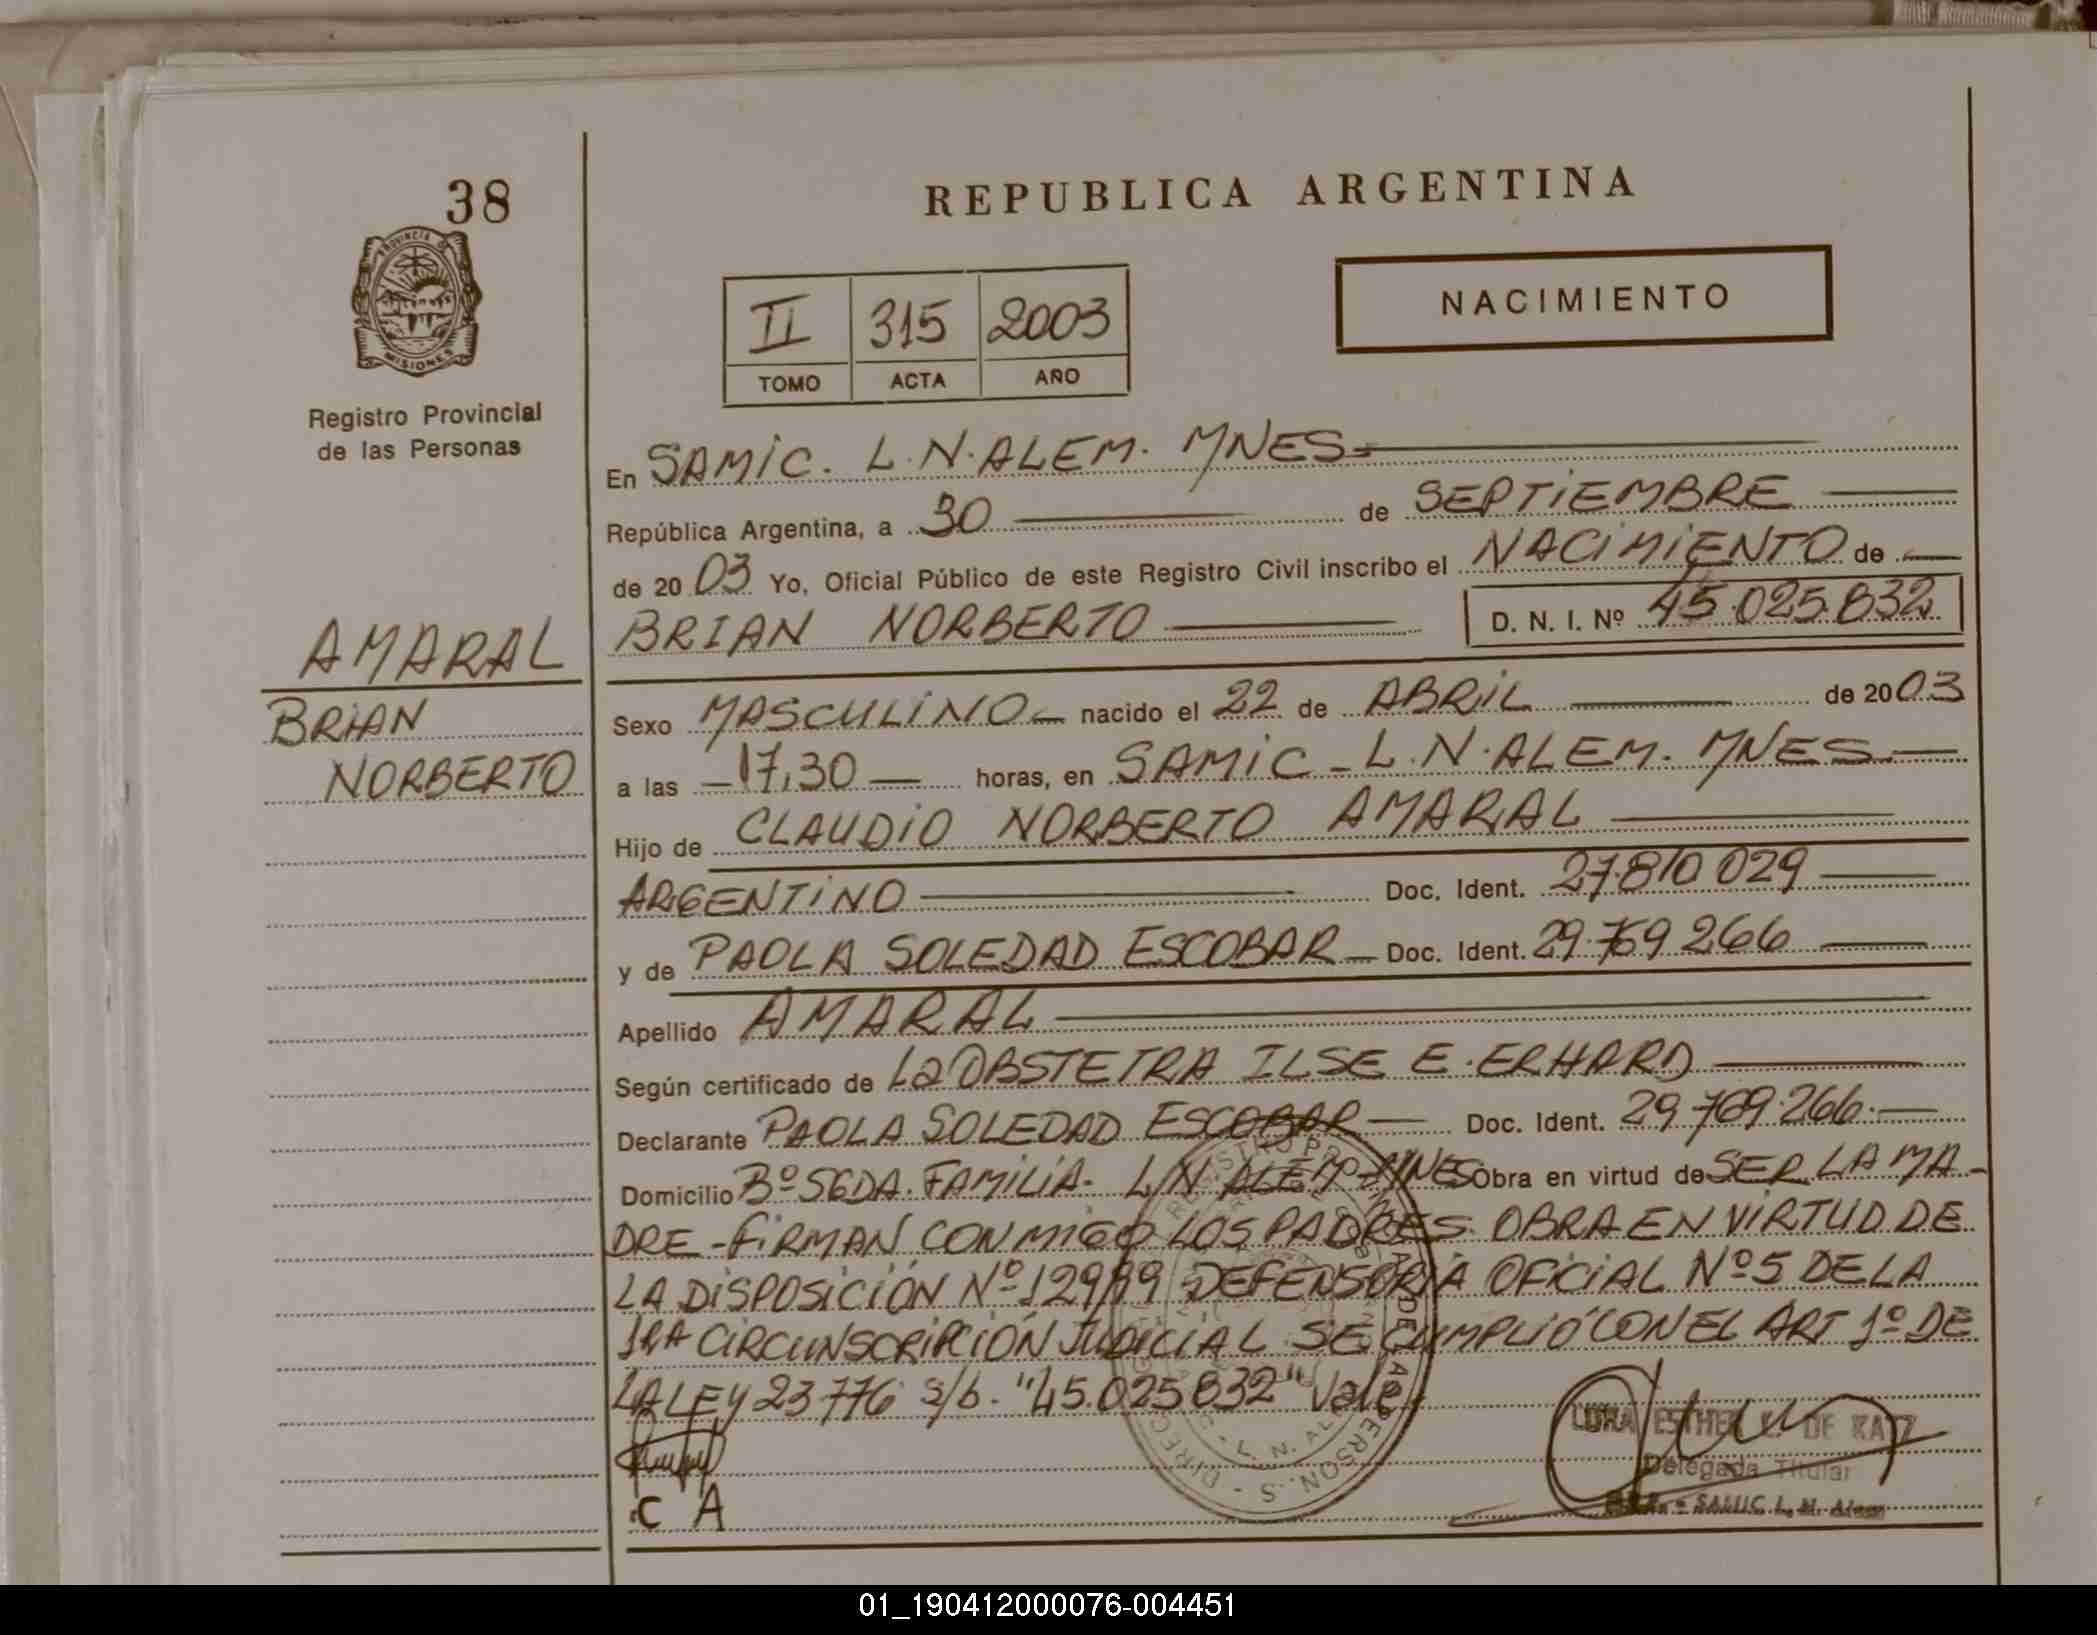 38
PROVINCIA DE
MISIONES
Registro Provincial
de las Personas
REPUBLICA ARGENTINA
II 315 2003
TOMO ACTA AÑO
NACIMIENTO
En SAMIC. L.N.ALEM. MNES
República Argentina, a 30 de SEPTIEMBRE
de 2003 Yo, Oficial Público de este Registro Civil inscribo el NACIMIENTO de
BRIAN NORBERTO D. N. I. Nº 45.025.832
AMARAL
BRIAN
NORBERTO
Sexo MASCULINO nacido el 22 de ABRIL de 2003
a las 17,30 horas, en SAMIC - L.N.ALEM. MNES
Hijo de CLAUDIO NORBERTO AMARAL
ARGENTINO Doc. Ident. 27.810 029
y de PAOLA SOLEDAD ESCOBAR Doc. Ident. 29.769 266
Apellido AMARAL
Según certificado de La OBSTETRA ILSE E. ERHARD
Declarante PAOLA SOLEDAD ESCOBAR Doc. Ident. 29.769.266
Domicilio Bº SGDA. FAMILIA. L N ALEM-MNES Obra en virtud de SER LA MA-
DRE - FIRMAN CONMIGO LOS PADRES. OBRA EN VIRTUD DE
LA DISPOSICIÓN Nº 129/99 DEFENSORIA OFICIAL Nº 5 DE LA
1RA CIRCUNSCRIPCIÓN JUDICIAL SE CUMPLIÓ CON EL ART 1º DE
LA LEY 23776 s/b. "45.025832" Vale
ESTHER DE KATZ
Delegada Titular
SAMIC L. N. Alem
C A
01_190412000076-004451